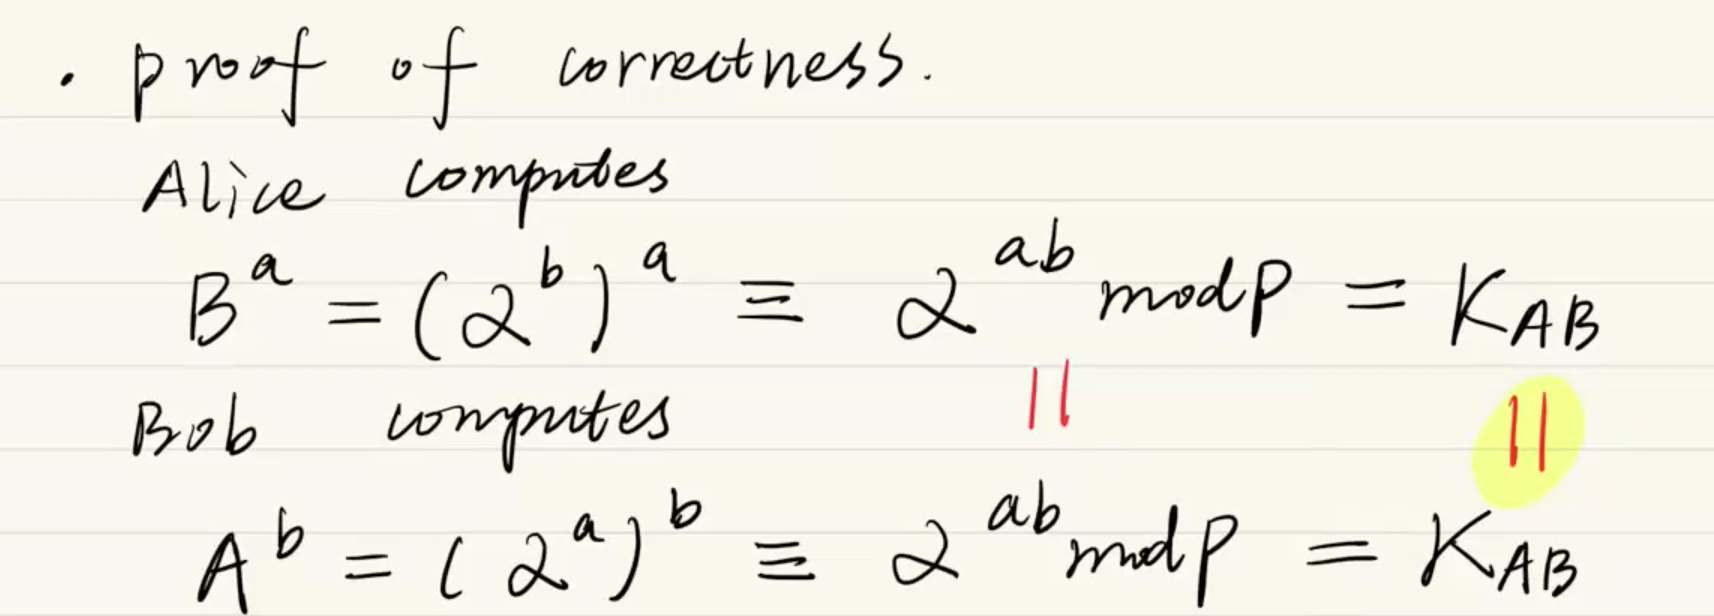 . proof of correctness.
Alice computes
B^a = (α^b)^a ≡ α^ab mod p = K_AB
||
||
Bob computes
A^b = (α^a)^b ≡ α^ab mod p = K_AB